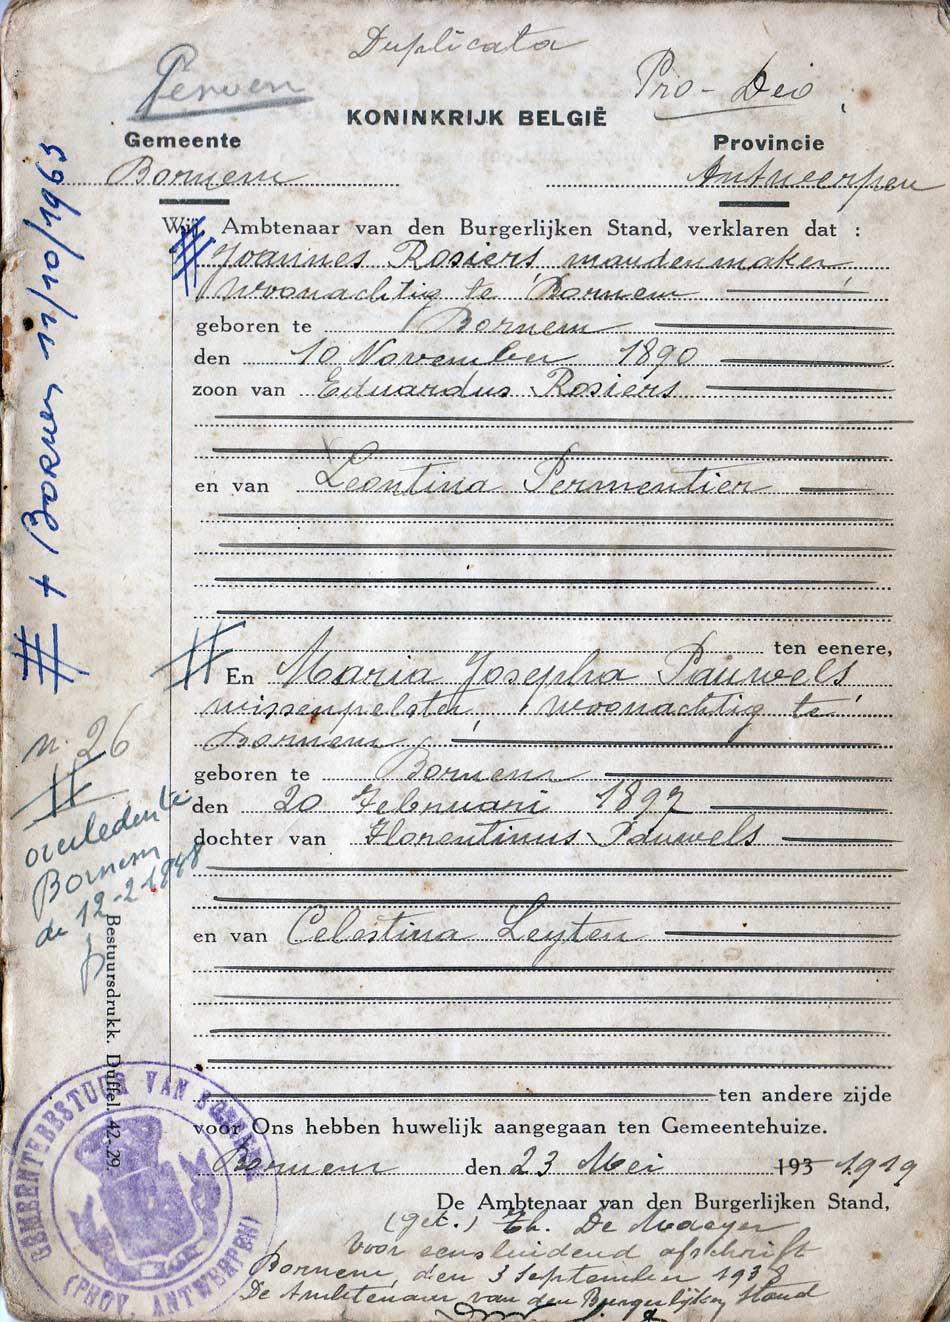 Duplicata
Pro-Deo
KONINKRIJK BELGIË
Gemeente
Provincie
Bornem
Antwerpen
Wij, Ambtenaar van den Burgerlijken Stand, verklaren dat :
Joannes Rosiers mandenmaker
woonachtig te Bornem
geboren te Bornem
den 10 November 1890
zoon van Eduardus Rosiers
en van Leontina Permentier
ten eenere,
En Maria Josepha Pauwels
wissenpelster, woonachtig te
Bornem
geboren te Bornem
den 20 Februari 1897
dochter van Florentinus Pauwels
en van Celestina Leyten
ten andere zijde
voor Ons hebben huwelijk aangegaan ten Gemeentehuize.
Bornem den 23 Mei 193 1919
De Ambtenaar van den Burgerlijken Stand,
(get.) De
Voor eensluidend afschrift
Bornem, den 3 September 1938
De Ambtenaar van den Burgerlijken Stand
# + Bornem 11/10/1963
n. 26
# overleden te
Bornem
de 12-2-1848
Bestuursdrukk. Duffel. 42-29.
GEMEENTEBESTUUR VAN BORNEM
(PROV. ANTWERPEN)